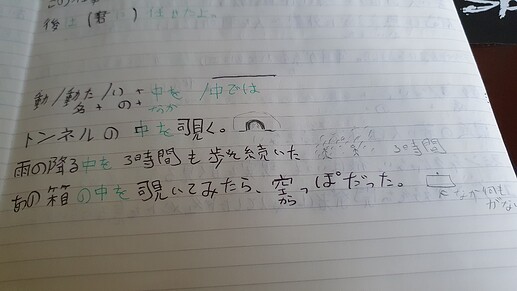 動/動た/い + 中を /中では
名 + の + なか
トンネルの 中を 覗く。
雨の降る中を 3時間も 歩き続いた 3時間
あの箱 の中を 覗いてみたら、空っぽだった。
から
なか何も
がない